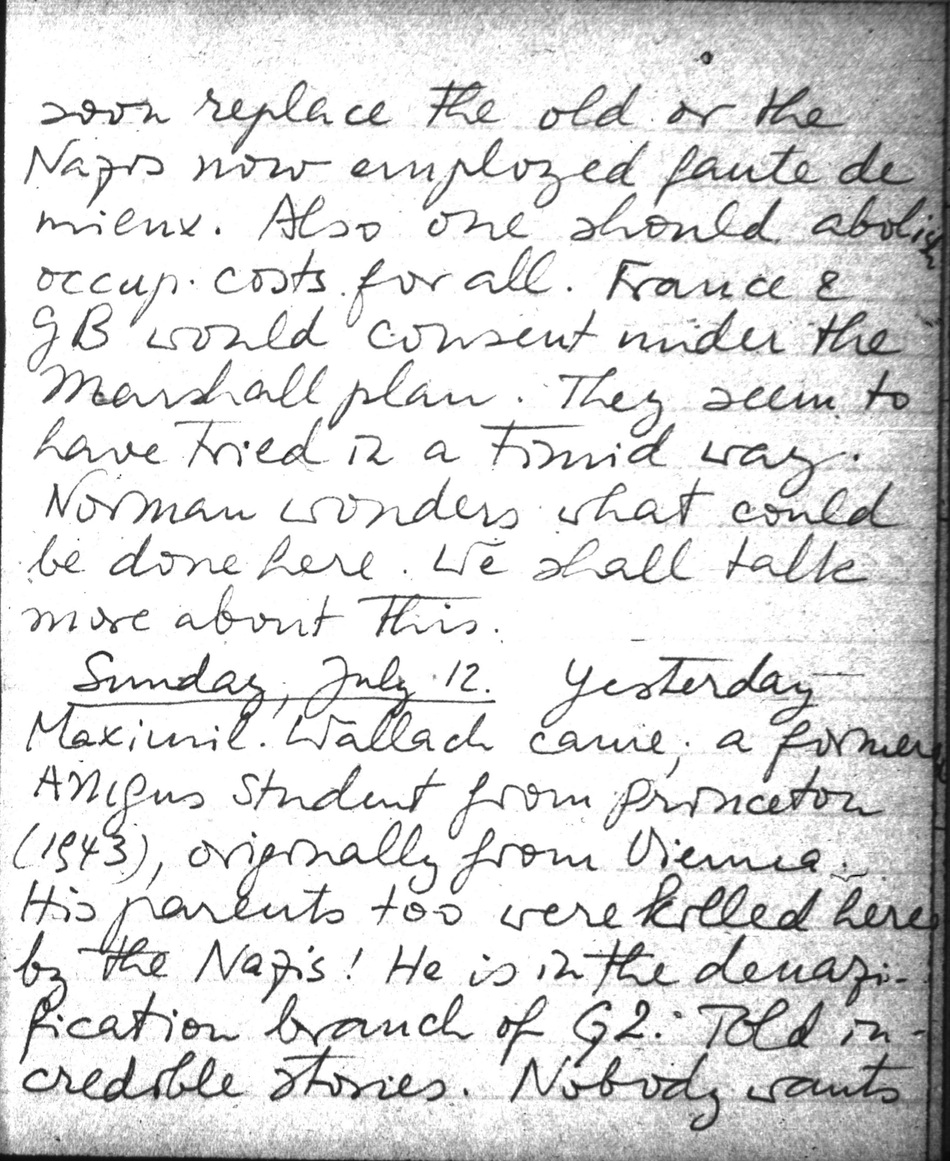 soon replace the old or the
Nazis now employed faute de
mieux. Also one should abolish
occup. costs for all. France &
GB would consent under the
Marshall plan. They seem to
have tried in a timid way.
Norman wonders what could
be done here. We shall talk
more about this.
Sunday, July 12. Yesterday
Maximil. Wallach came, a former
student from Princeton
(1943), originally from Vienna.
His parents too were killed here
by the Nazis! He is in the denazi-
fication branch of G2. Told in-
credible stories. Nobody wants